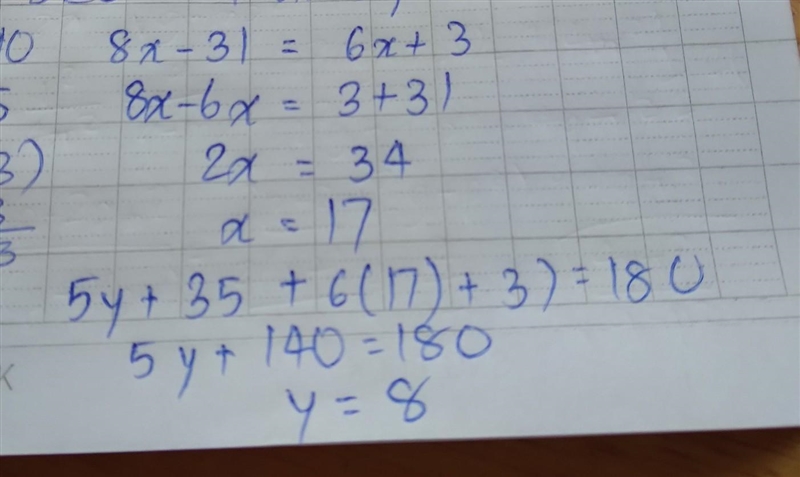 8x - 31 = 6x + 3
8x - 6x = 3 + 31
2x = 34
x = 17
5y + 35 + 6(17) + 3) = 180
5y + 140 = 180
y = 8